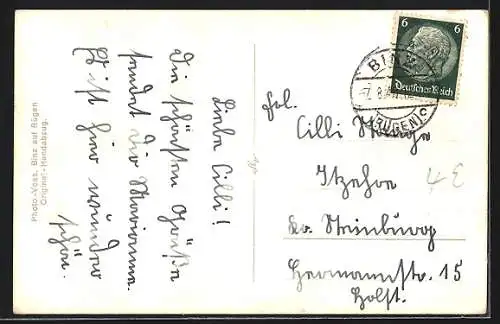 Liebe Cilli!
Die schönsten Grüße
sendet Dir Marianne.
Es ist hier wunder
schön.
Photo-Voss, Binz auf Rügen
Original-Handabzug.
6 6
Deutsches Reich
BINZ
(RÜGEN)
Frl.
Cilli
Itzehoe
Kr. Steinburg
Hermannstr. 15
Holst.
4 E